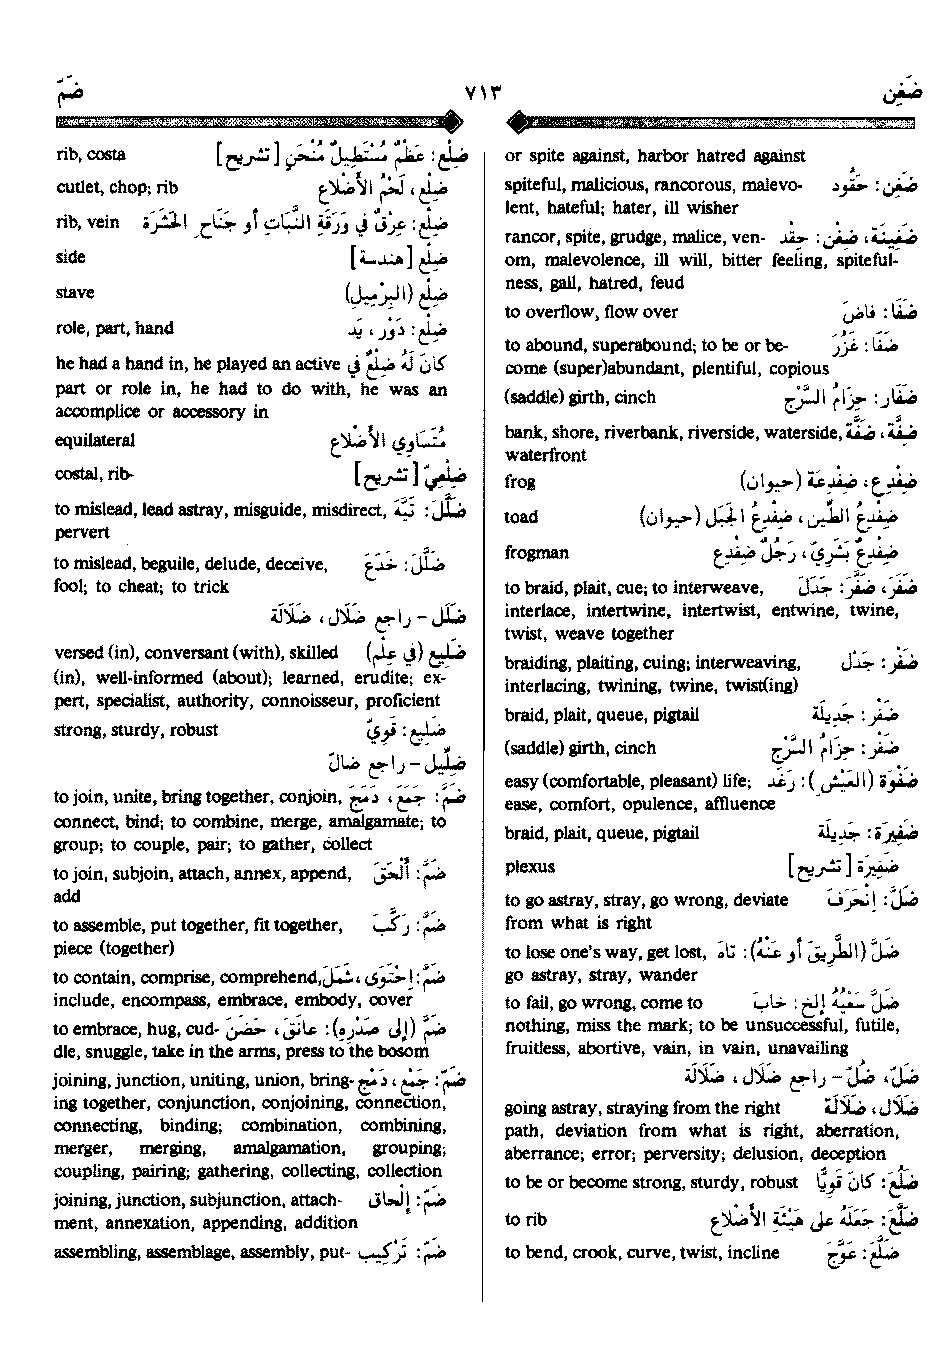 ضَغِن ٧١٣ ضَمّ
or spite against, harbor hatred against
ضَغِن : حَقُود spiteful, malicious, rancorous, malevo-
lent, hateful; hater, ill wisher
ضَغِينَة، ضِغْن : حِقْد rancor, spite, grudge, malice, ven-
om, malevolence, ill will, bitter feeling, spiteful-
ness, gall, hatred, feud
ضَفَا : فَاضَ to overflow, flow over
ضَفَا : غَزُرَ to abound, superabound; to be or be-
come (super)abundant, plentiful, copious
ضَفَار : حِزَامُ السَّرْج (saddle) girth, cinch
ضِفَّة، ضَفَّة bank, shore, riverbank, riverside, waterside,
waterfront
ضِفْدِع، ضِفْدِعَة (حيوان) frog
ضِفْدِعُ الطِّين، ضِفْدِعُ الجَبَل (حيوان) toad
ضِفْدِعٌ بَشَرِيّ، رَجُلٌ ضِفْدِع frogman
ضَفَرَ، ضَفَّرَ : جَدَلَ to braid, plait, cue; to interweave,
interlace, intertwine, intertwist, entwine, twine,
twist, weave together
ضَفْر : جَدْل braiding, plaiting, cuing; interweaving,
interlacing, twining, twine, twist(ing)
ضَفْر : جَدِيلَة braid, plait, queue, pigtail
ضَفْر : حِزَامُ السَّرْج (saddle) girth, cinch
ضَفْوَة (العَيْش) : رَغَد easy (comfortable, pleasant) life;
ease, comfort, opulence, affluence
ضَفِيرَة : جَدِيلَة braid, plait, queue, pigtail
ضَفِيرَة [تشريح] plexus
ضَلَّ : إِنْحَرَفَ to go astray, stray, go wrong, deviate
from what is right
ضَلَّ (الطَّرِيقَ أو عَنْهُ) : تَاهَ to lose one's way, get lost,
go astray, stray, wander
ضَلَّ سَعْيُهُ إلخ : خَابَ to fail, go wrong, come to
nothing, miss the mark; to be unsuccessful, futile,
fruitless, abortive, vain, in vain, unavailing
ضَلّ، ضُلّ - راجع ضَلَال، ضَلَالَة
ضَلَال، ضَلَالَة going astray, straying from the right
path, deviation from what is right, aberration,
aberrance; error; perversity; delusion, deception
ضَلُعَ : كَانَ قَوِيًّا to be or become strong, sturdy, robust
ضَلَّعَ : جَعَلَهُ على هَيْئَةِ الأَضْلَاع to rib
ضَلَّعَ : عَوَّجَ to bend, crook, curve, twist, incline
ضِلْع : عَظْمٌ مُسْتَطِيلٌ مُنْحَنٍ [تشريح] rib, costa
ضِلْع، لَحْمُ الأَضْلَاع cutlet, chop; rib
ضِلْع : عِرْقٌ في وَرَقَةِ النَّبَات أو جَنَاحِ الحَشَرَة rib, vein
ضِلْع [هندسة] side
ضِلْع (البِرْمِيل) stave
ضِلْع : دَوْر، يَد role, part, hand
كَانَ لَهُ ضِلْعٌ في he had a hand in, he played an active
part or role in, he had to do with, he was an
accomplice or accessory in
مُتَسَاوِي الأَضْلَاع equilateral
ضِلْعِيّ [تشريح] costal, rib-
ضَلَّلَ : تَيَّهَ to mislead, lead astray, misguide, misdirect,
pervert
ضَلَّلَ : خَدَعَ to mislead, beguile, delude, deceive,
fool; to cheat; to trick
ضَلَل - راجع ضَلَال، ضَلَالَة
ضَلِيع (في عِلْم) versed (in), conversant (with), skilled
(in), well-informed (about); learned, erudite; ex-
pert, specialist, authority, connoisseur, proficient
ضَلِيع : قَوِيّ strong, sturdy, robust
ضِلِّيل - راجع ضَالّ
ضَمَّ : جَمَعَ، دَمَجَ to join, unite, bring together, conjoin,
connect, bind; to combine, merge, amalgamate; to
group; to couple, pair; to gather, collect
ضَمَّ : أَلْحَقَ to join, subjoin, attach, annex, append,
add
ضَمَّ : رَكَّبَ to assemble, put together, fit together,
piece (together)
ضَمَّ : إِحْتَوَى، شَمَلَ to contain, comprise, comprehend,
include, encompass, embrace, embody, cover
ضَمَّ (إلى صَدْرِهِ) : عَانَقَ، حَضَنَ to embrace, hug, cud-
dle, snuggle, take in the arms, press to the bosom
ضَمّ : جَمْع، دَمْج joining, junction, uniting, union, bring-
ing together, conjunction, conjoining, connection,
connecting, binding; combination, combining,
merger, merging, amalgamation, grouping;
coupling, pairing; gathering, collecting, collection
ضَمّ : إِلْحَاق joining, junction, subjunction, attach-
ment, annexation, appending, addition
ضَمّ : تَرْكِيب assembling, assemblage, assembly, put-